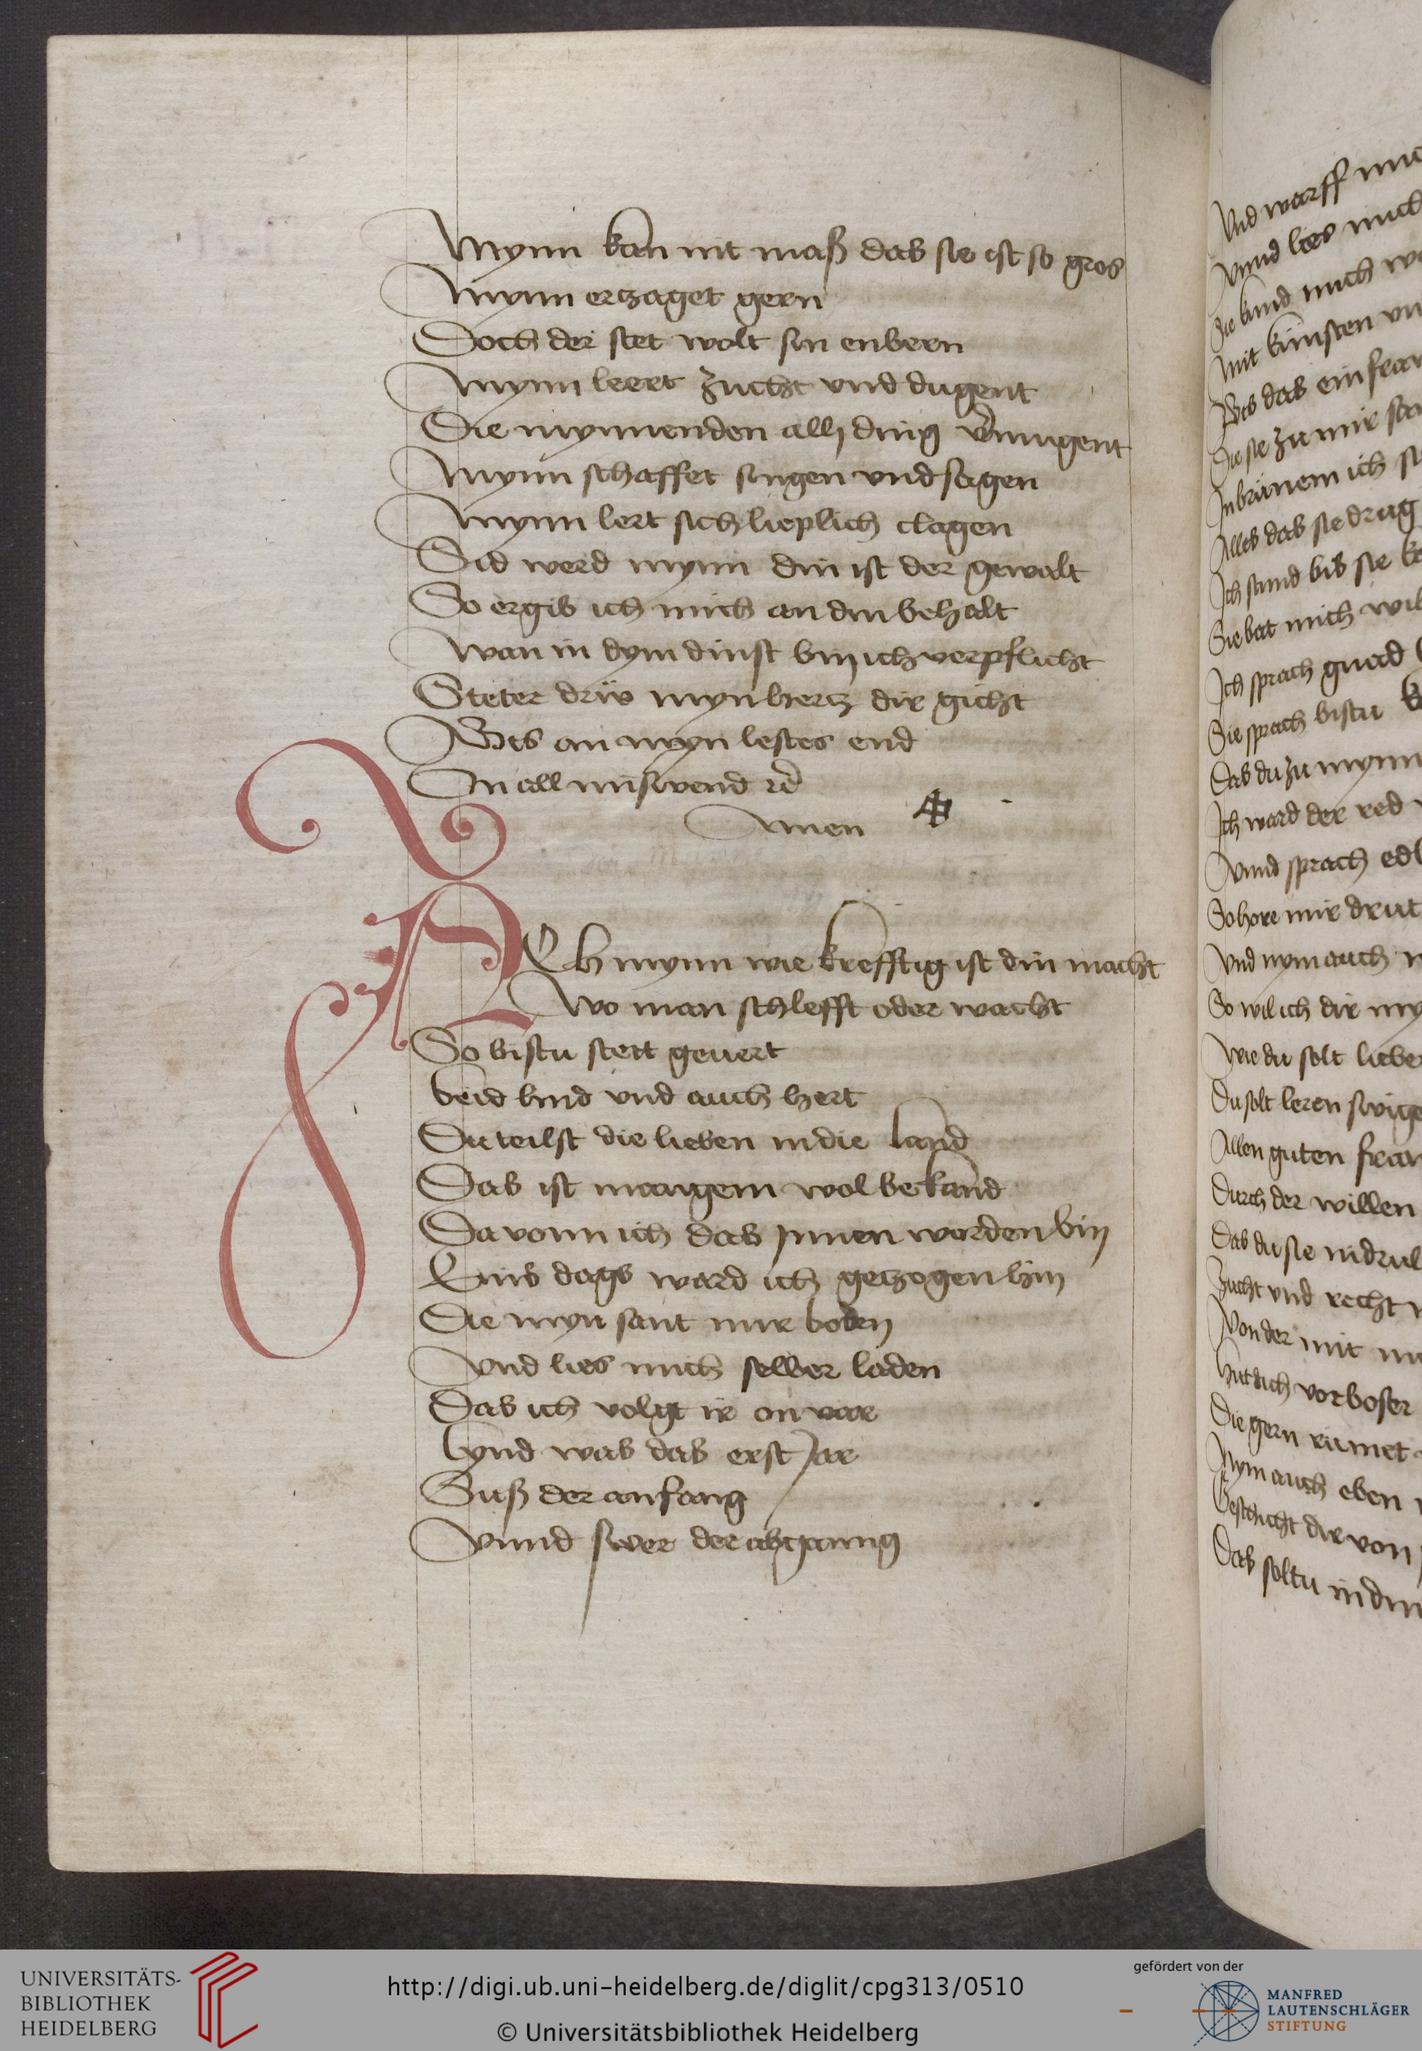 Mynn kan nit maß das sie ist so gros
Mynn erczaget gern
Doch der stet wolt sin enbern
Mynn leret zucht vnd dugent
Die mynnenden all ding vermugent
Mynn schaffet singen vnd sagen
Mynn lert sich lieplich clagen
Sid werd mynn din ist der gewalt
So ergib ich mich an din behalt
Wan in dym dinst bin ich verpflicht
Steter drüw myn hercz dir gicht
Bis an myn lestes end
In all misswend
Amen
Eh mynn wie krefftig ist din macht
Wo man schlefft oder wacht
So bistu stett geuert
Beid lind vnd auch hert
Du teilst die lieben in die land
Das ist mangem wol bekand
Da vonn ich das Innen worden bin
Eins dags ward ich geczogen hin
Die myn sant mir boden
Vnd lies mich selber laden
Das ich volgt ir on var
Lynd was das erst Jar
Suß der anfang
Vnnd swer der abgang
Vnd warff
Vnnd lies mich
Sie bund mich
Mit künsten
Bis das ein
Die sie zu mir
In brünem ich
Alles das sie drug
Ich stund bis sie
Sie bat mich
Ich sprach gnad
Sie sprach bistu
Das du zu mynn
Ich ward der red
Vnnd sprach edl
So hore mir drut
Vnd nym auch
So wil ich dir
Wie du solt lieben
Du solt leren swige
Allen guten
Durch der willen
Das du sie
Zucht vnd recht
Von der mit
Hut dich vor boser
Die gern rumet
Nym auch eben
Beschicht dir von
Das soltu in din
UNIVERSITÄTS-
BIBLIOTHEK
HEIDELBERG
http://digi.ub.uni-heidelberg.de/diglit/cpg313/0510
© Universitätsbibliothek Heidelberg
gefördert von der
MANFRED
LAUTENSCHLÄGER
STIFTUNG